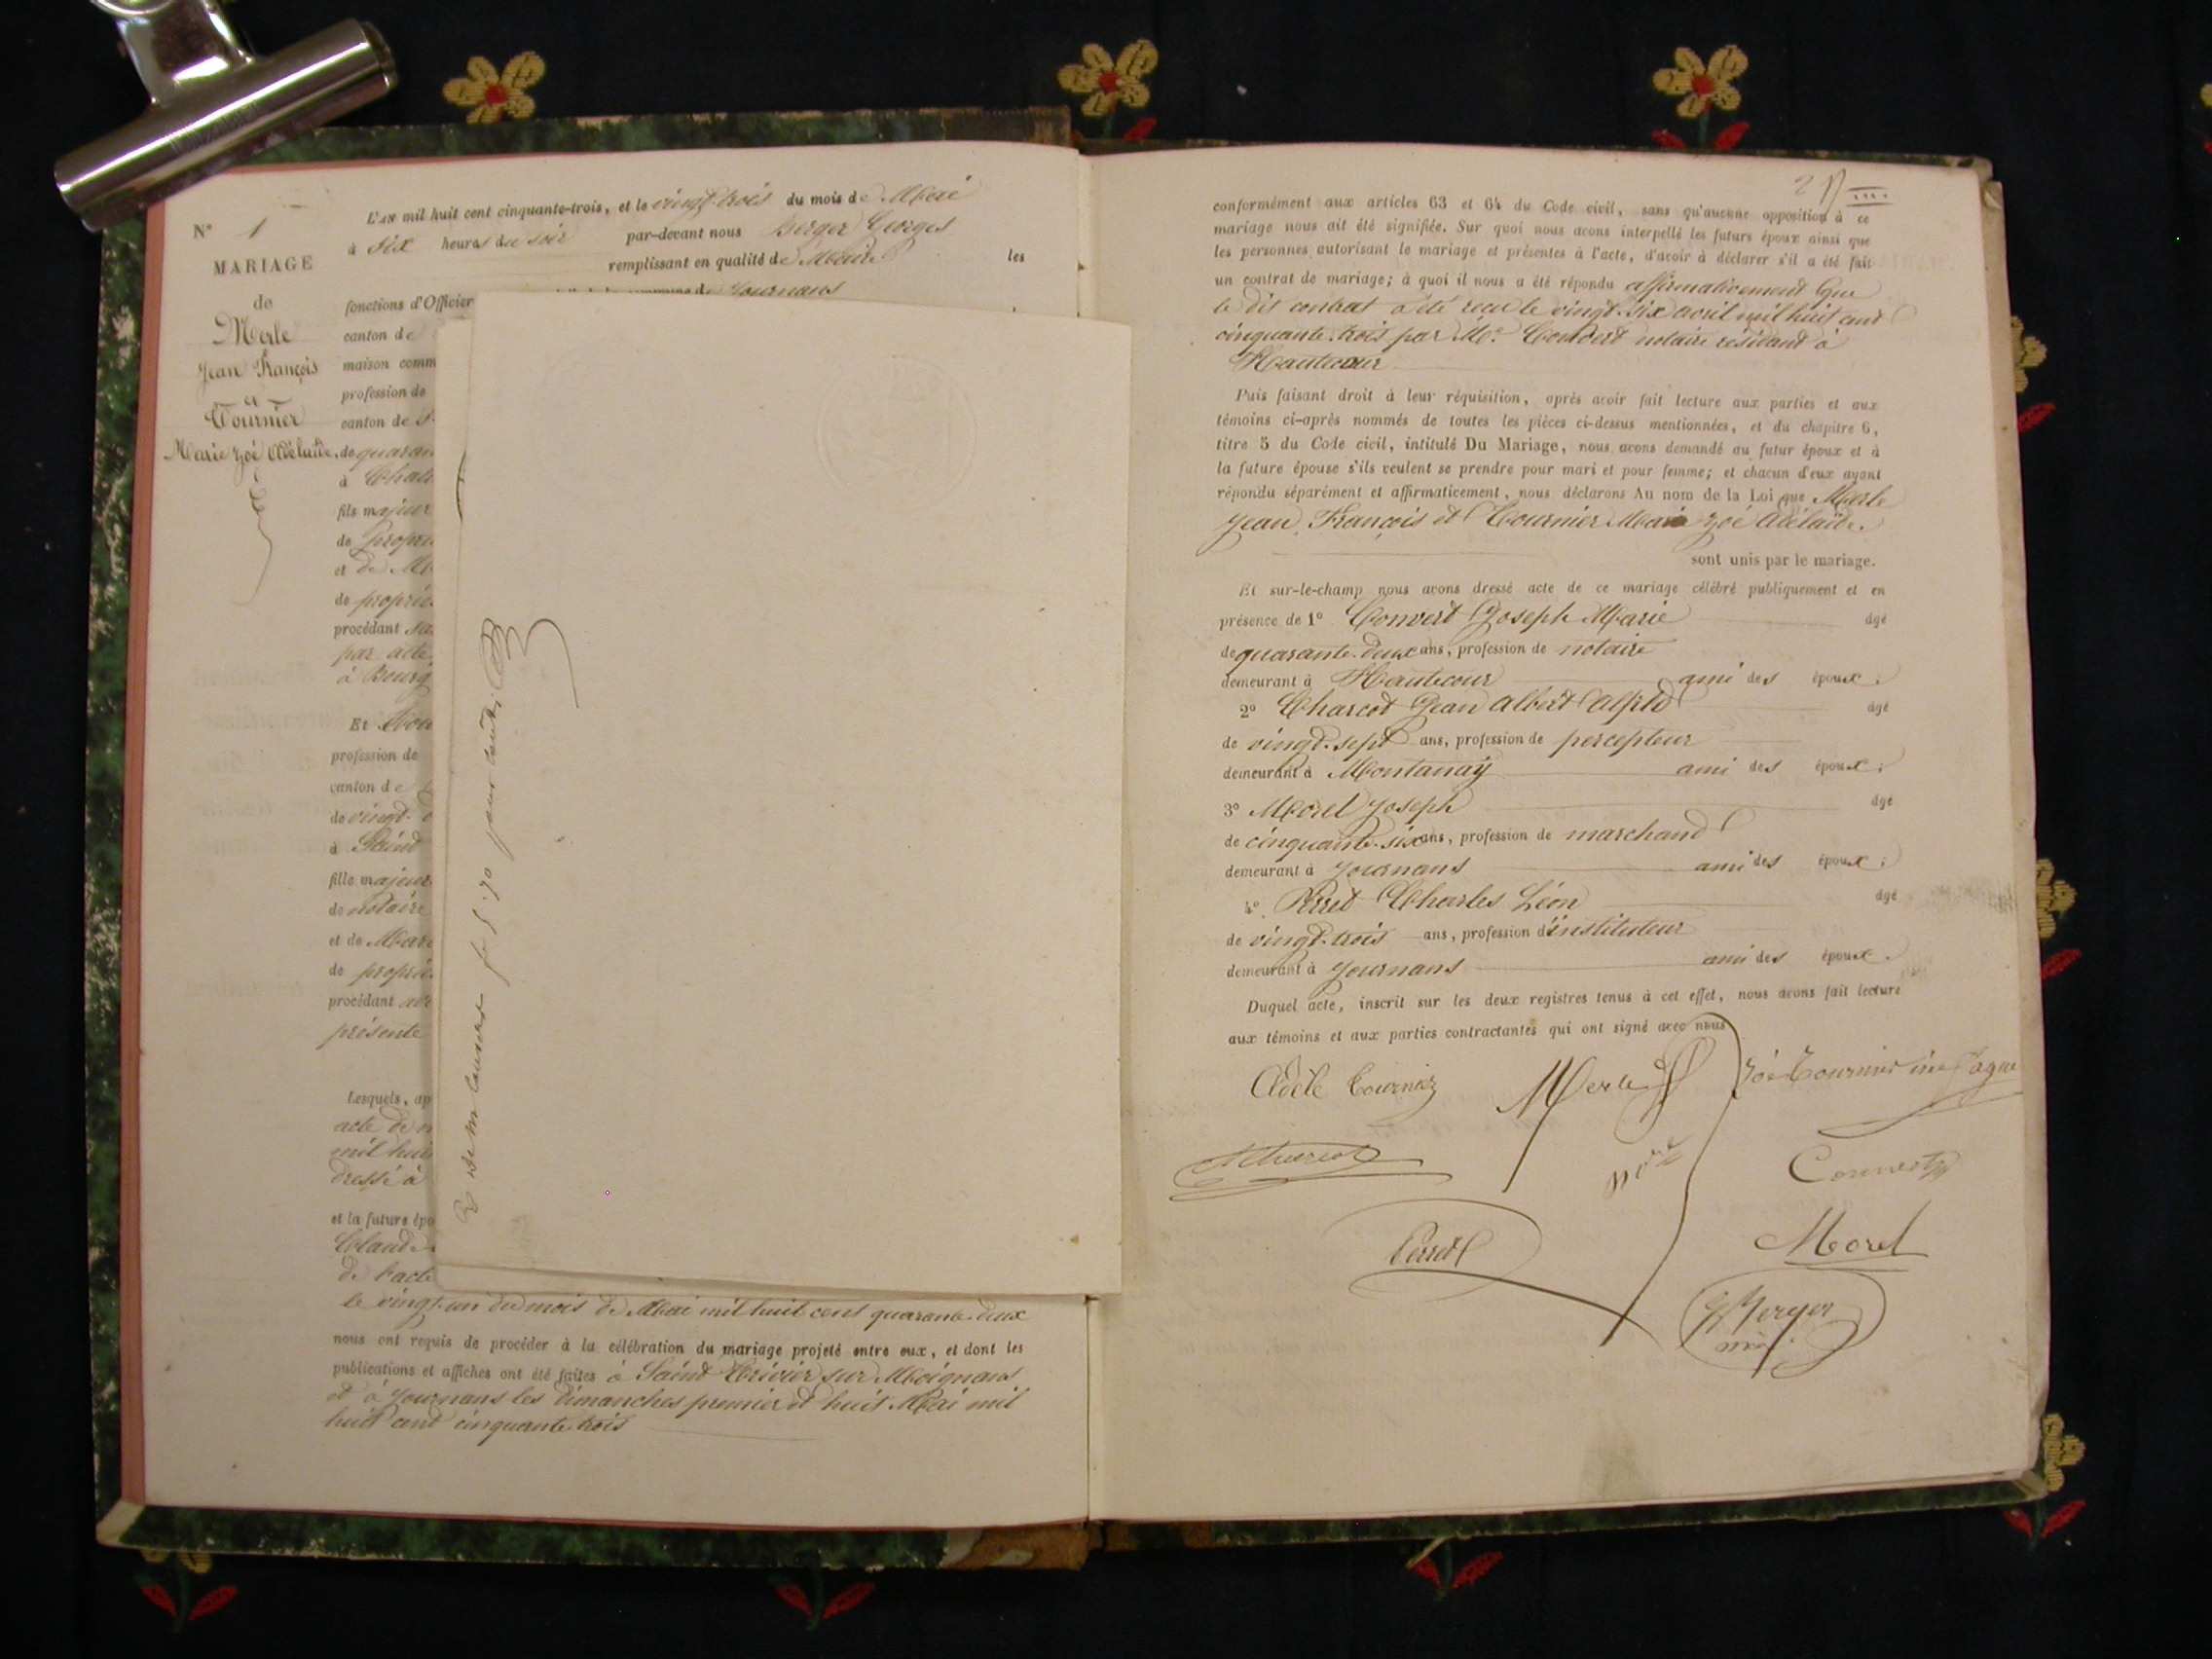 N° 1
MARIAGE
de
Merle
Jean François
et
Tournier
Marie Zoé Adélaïde,
L'AN mil huit cent cinquante-trois, et le vingt-trois du mois de Mai
à six heures du soir par-devant nous Berger Georges
remplissant en qualité de Maire les
fonctions d'Officier Journans
canton de
maison comm
profession de
canton de
de quaran
à Chat
fils majeur
de propri
et de M
de proprié
procédant
par acte
à Bourg
Et
profession de
canton de
de vingt
à Saint
fille majeur
de notaire
et de Mar
de proprié
procédant
présente
Lesquels, ap
acte de
mil huit
dressé à
et la future épo
Claude
de l'acte
le vingt-un du mois de Mai mil huit cent quarante-deux
nous ont requis de procéder à la célébration du mariage projeté entre eux, et dont les
publications et affiches ont été faites à Saint Trivier sur Moignans
et à Journans les dimanches premier et huit Mai mil
huit cent cinquante trois
pour
2
conformément aux articles 63 et 64 du Code civil, sans qu'aucune opposition à ce
mariage nous ait été signifiée. Sur quoi nous avons interpellé les futurs époux ainsi que
les personnes autorisant le mariage et présentes à l'acte, d'avoir à déclarer s'il a été fait
un contrat de mariage; à quoi il nous a été répondu affirmativement que
le dit contrat a été reçu le vingt-six avril mil huit cent
cinquante-trois par Me. Convert notaire résidant à
Hautecour
Puis faisant droit à leur réquisition, après avoir fait lecture aux parties et aux
témoins ci-après nommés de toutes les pièces ci-dessus mentionnées, et du chapitre 6,
titre 5 du Code civil, intitulé Du Mariage, nous avons demandé au futur époux et à
la future épouse s'ils veulent se prendre pour mari et pour femme; et chacun d'eux ayant
répondu séparément et affirmativement, nous déclarons Au nom de la Loi que Merle
Jean François et Tournier Marie Zoé Adélaïde.
sont unis par le mariage.
Et sur-le-champ nous avons dressé acte de ce mariage célébré publiquement et en
présence de 1° Convert Joseph Marie âgé
de quarante-deux ans, profession de notaire
demeurant à Hautecour ami des époux;
2° Charcot Jean Albert Alfred âgé
de vingt-sept ans, profession de percepteur
demeurant à Montanay ami des époux;
3° Morel Joseph âgé
de cinquante-six ans, profession de marchand
demeurant à Journans ami des époux;
4° Perret Charles Léon âgé
de vingt-trois ans, profession d'instituteur
demeurant à Journans ami des époux.
Duquel acte, inscrit sur les deux registres tenus à cet effet, nous avons fait lecture
aux témoins et aux parties contractantes qui ont signé avec nous
Adèle Tournier Merle Zoé Tournier
Charcot Convert
Perret Morel
G Berger